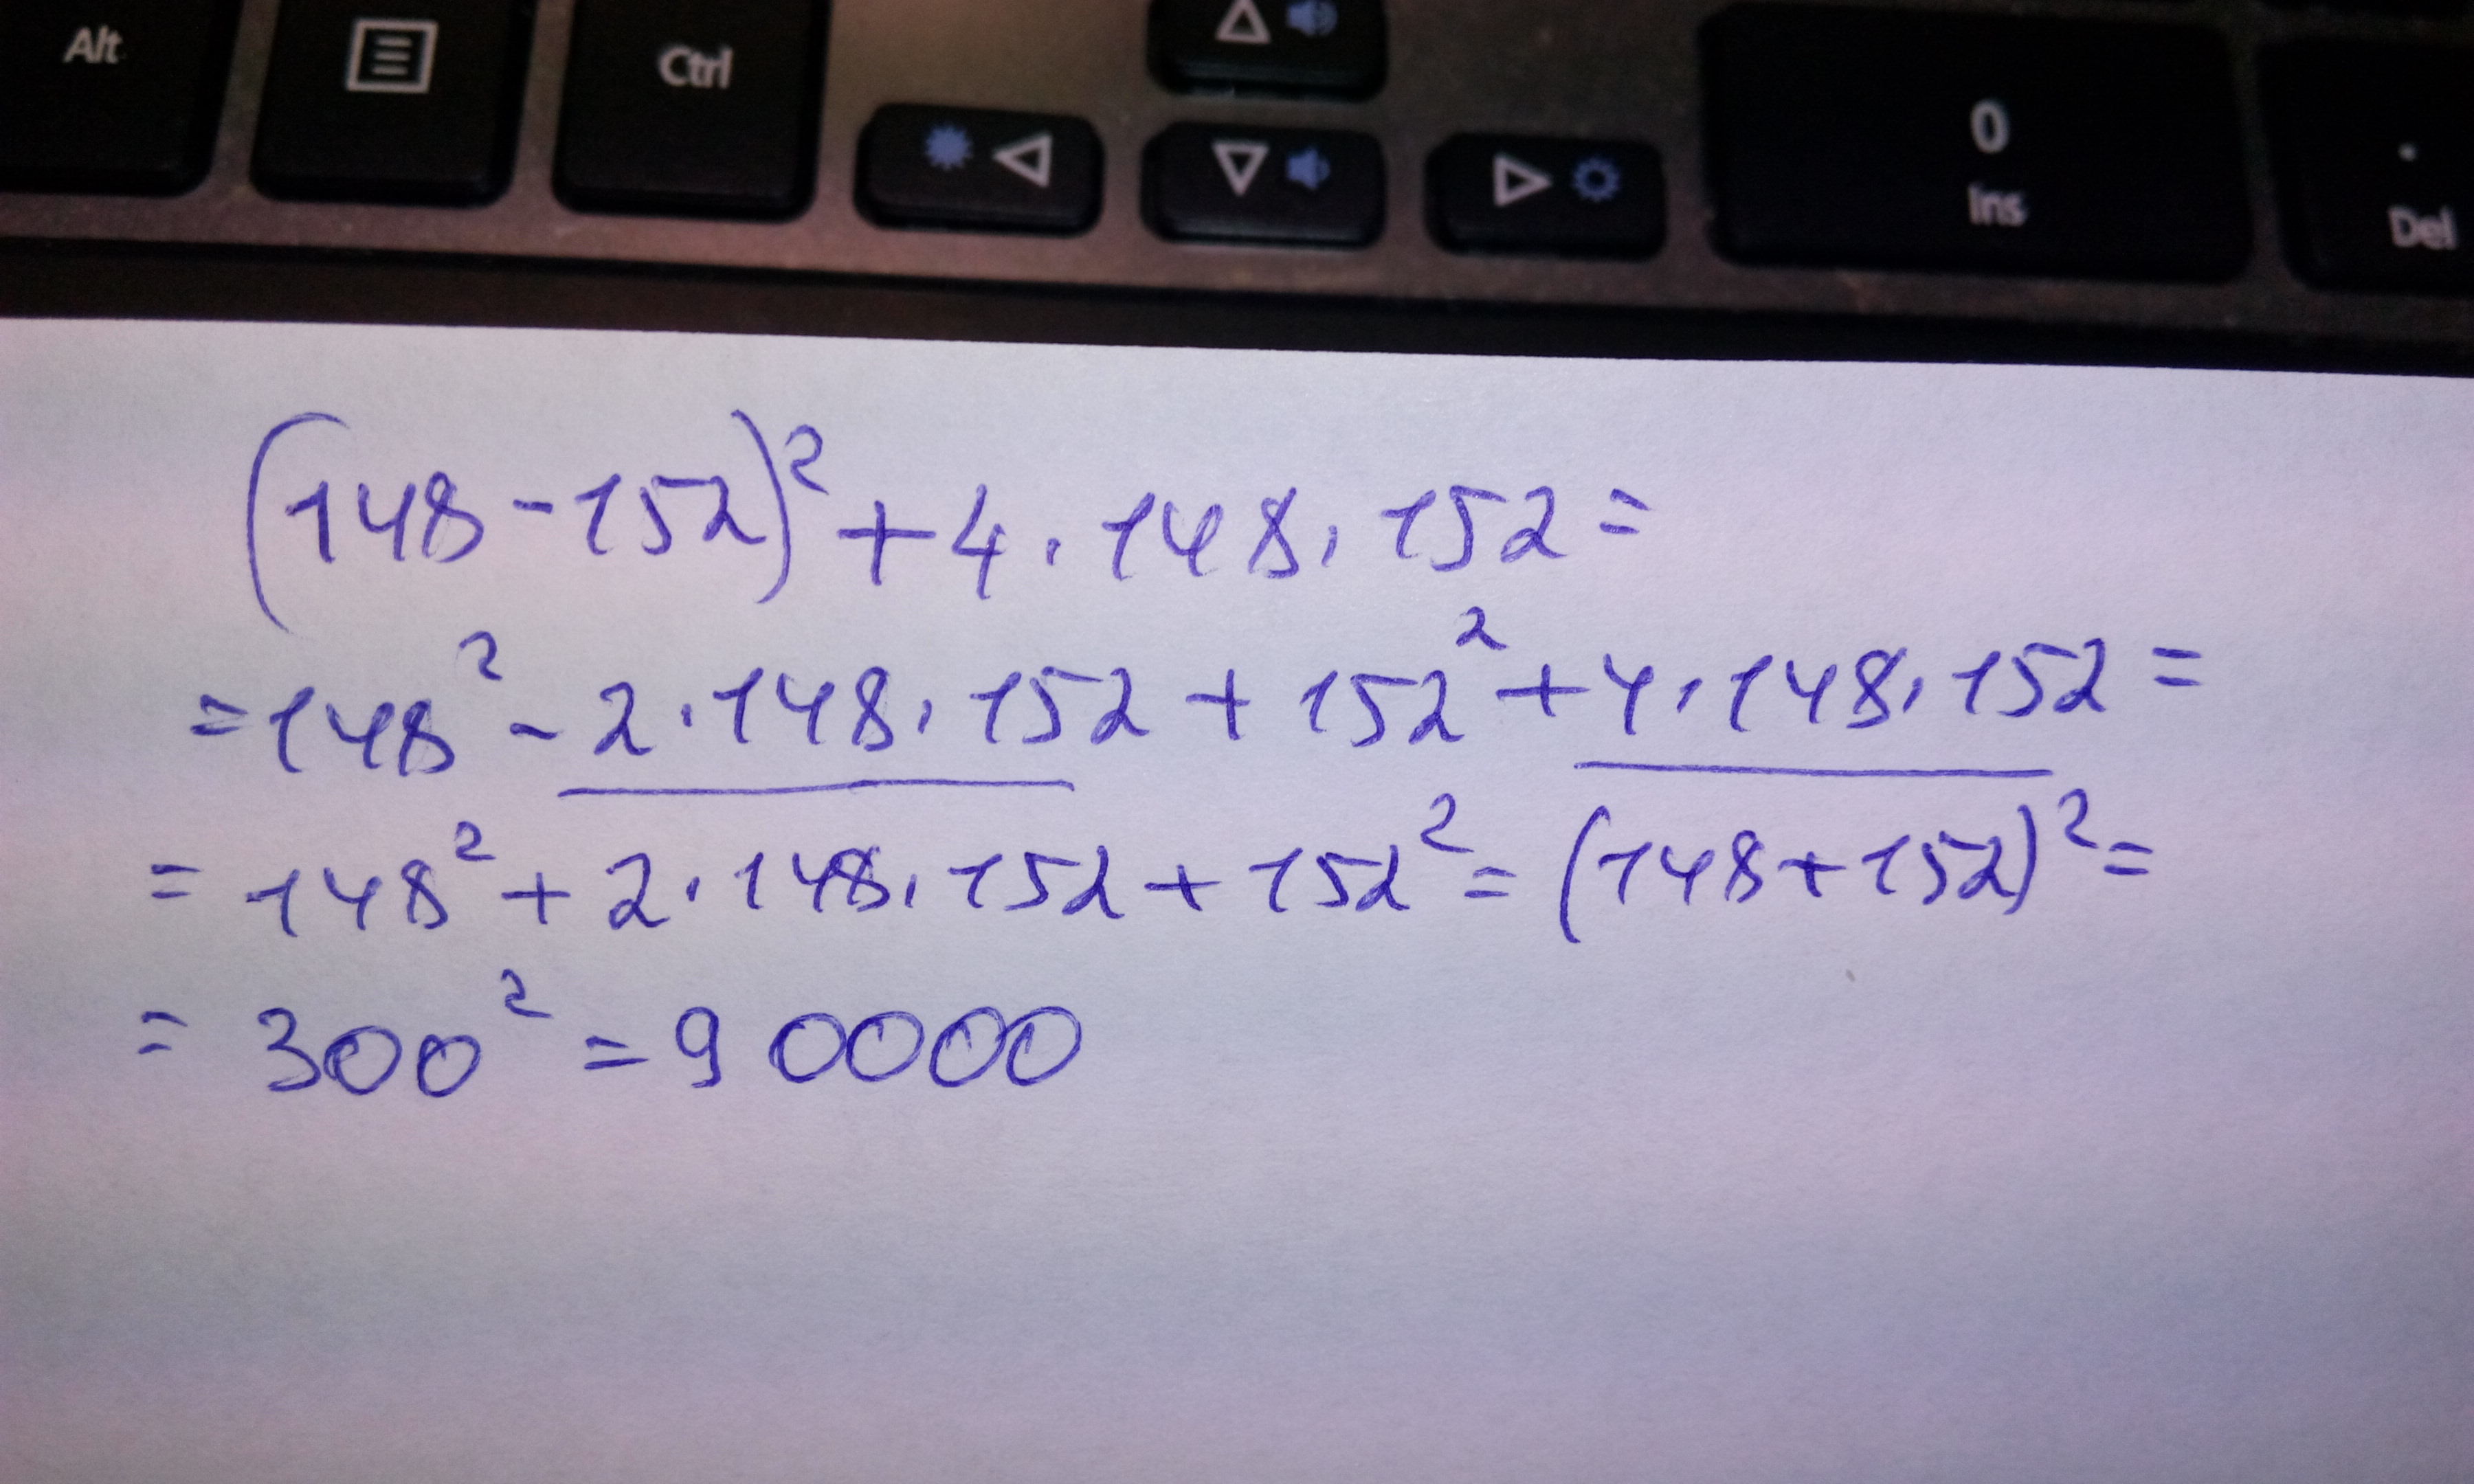 Alt Ctrl 0 Ins . Del
(148-152)²+4·148·152=
=148²-2·148·152+152²+4·148·152=
=148²+2·148·152+152²=(148+152)²=
=300²=90000